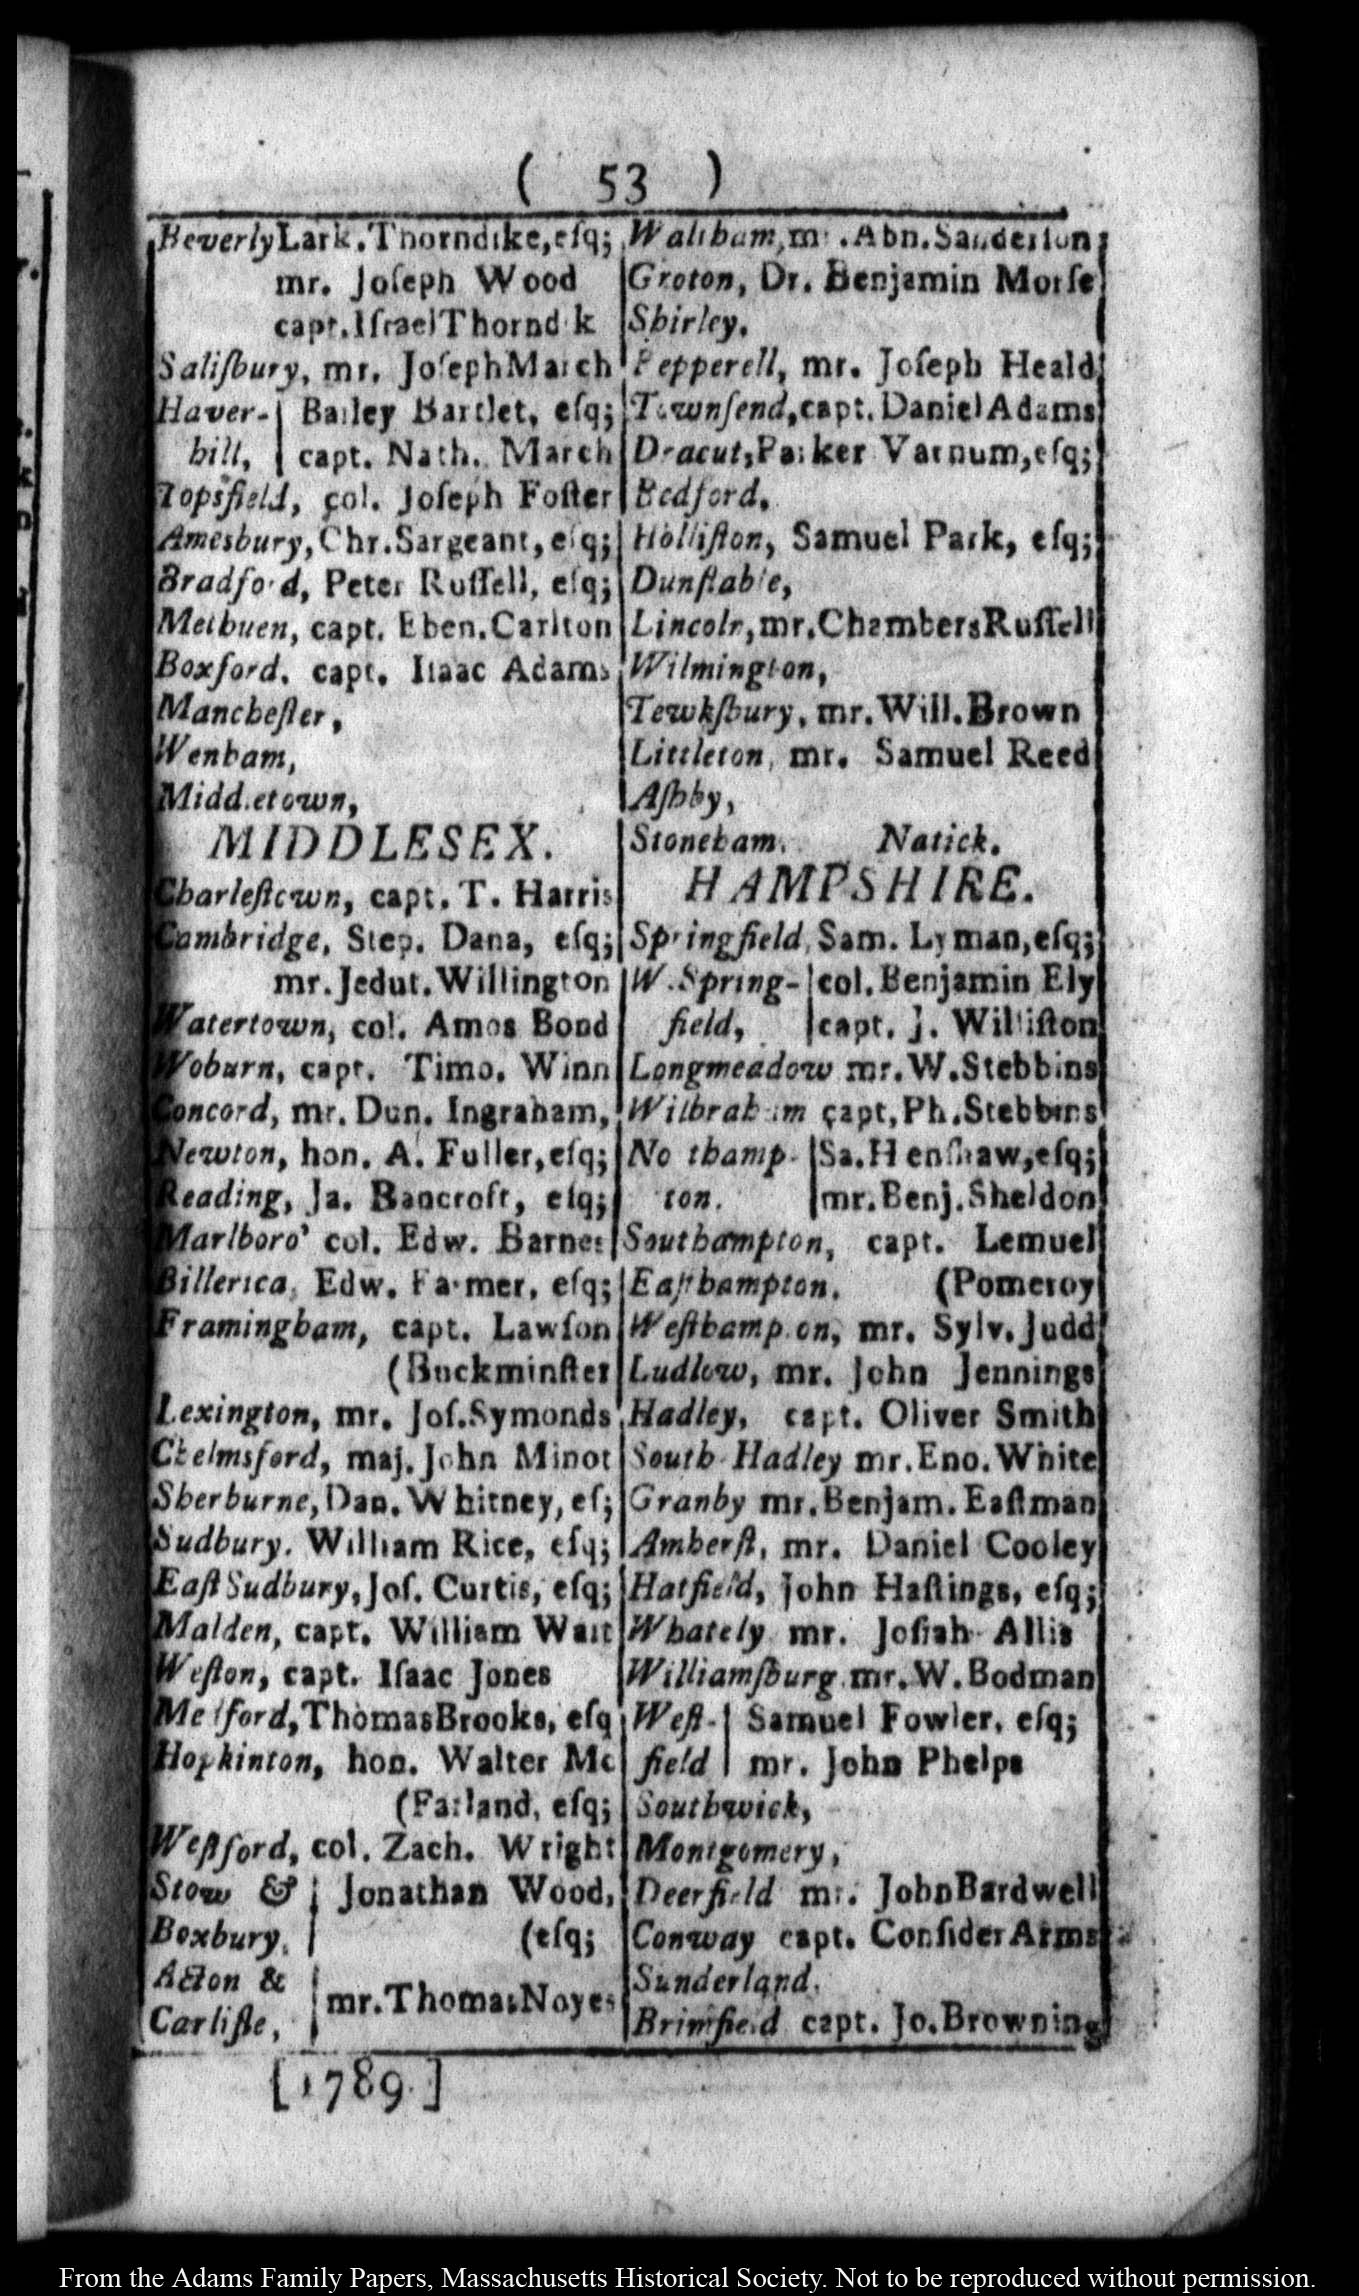 ( 53 )
Beverly Lark. Thorndike, eſq;
mr. Joſeph Wood
capt. Iſrael Thornd k
Saliſbury, mr. Joſeph March
Haver- | Bailey Bartlet, eſq;
hill, | capt. Nath. March
Topsfield, col. Joſeph Foſter
Amesbury, Chr. Sargeant, eſq;
Bradford, Peter Ruſſell, eſq;
Methuen, capt. Eben. Carlton
Boxford, capt. Iſaac Adams
Mancheſter,
Wenham,
Middletown,
MIDDLESEX.
Charleſtown, capt. T. Harris
Cambridge, Step. Dana, eſq;
mr. Jedut. Willington
Watertown, col. Amos Bond
Woburn, capt. Timo. Winn
Concord, mr. Dun. Ingraham,
Newton, hon. A. Fuller, eſq;
Reading, Ja. Bancroft, eſq;
Marlboro' col. Edw. Barnes
Billerica, Edw. Farmer, eſq;
Framingham, capt. Lawſon
(Buckminſter
Lexington, mr. Joſ. Symonds
Chelmsford, maj. John Minot
Sherburne, Dan. Whitney, eſ;
Sudbury. William Rice, eſq;
Eaſt Sudbury, Joſ. Curtis, eſq;
Malden, capt. William Wait
Weſton, capt. Iſaac Jones
Medford, Thomas Brooks, eſq
Hopkinton, hon. Walter Mc
(Farland, eſq;
Weſtford, col. Zach. Wright
Stow & | Jonathan Wood,
Boxbury, | (eſq;
Acton & | mr. Thomas Noyes
Carliſle,
[1789.]
Waltham, mr. Abn. Sanderſon
Groton, Dr. Benjamin Morſe
Shirley.
Pepperell, mr. Joſeph Heald
Townſend, capt. Daniel Adams
Dracut, Parker Varnum, eſq;
Bedford.
Holliſton, Samuel Park, eſq;
Dunſtable,
Lincoln, mr. Chambers Ruſſell
Wilmington,
Tewkſbury, mr. Will. Brown
Littleton, mr. Samuel Reed
Aſhby,
Stoneham. Natick.
HAMPSHIRE.
Springfield, Sam. Lyman, eſq;
W. Spring- | col. Benjamin Ely
field, | capt. J. Williſton
Longmeadow mr. W. Stebbins
Wilbraham capt, Ph. Stebbins
No thamp- | Sa. Henſhaw, eſq;
ton. | mr. Benj. Sheldon
Southampton, capt. Lemuel
Eaſthampton. (Pomeroy
Weſthampton, mr. Sylv. Judd
Ludlow, mr. John Jennings
Hadley, capt. Oliver Smith
South Hadley mr. Eno. White
Granby mr. Benjam. Eaſtman
Amherſt, mr. Daniel Cooley
Hatfield, John Haſtings, eſq;
Whately mr. Joſiah Allis
Williamſburg mr. W. Bodman
Weſt- | Samuel Fowler, eſq;
field | mr. John Phelps
Southwick,
Montgomery,
Deerfield mr. John Bardwell
Conway capt. Conſider Arms
Sunderland.
Brimfield capt. Jo. Browning
From the Adams Family Papers, Massachusetts Historical Society. Not to be reproduced without permission.